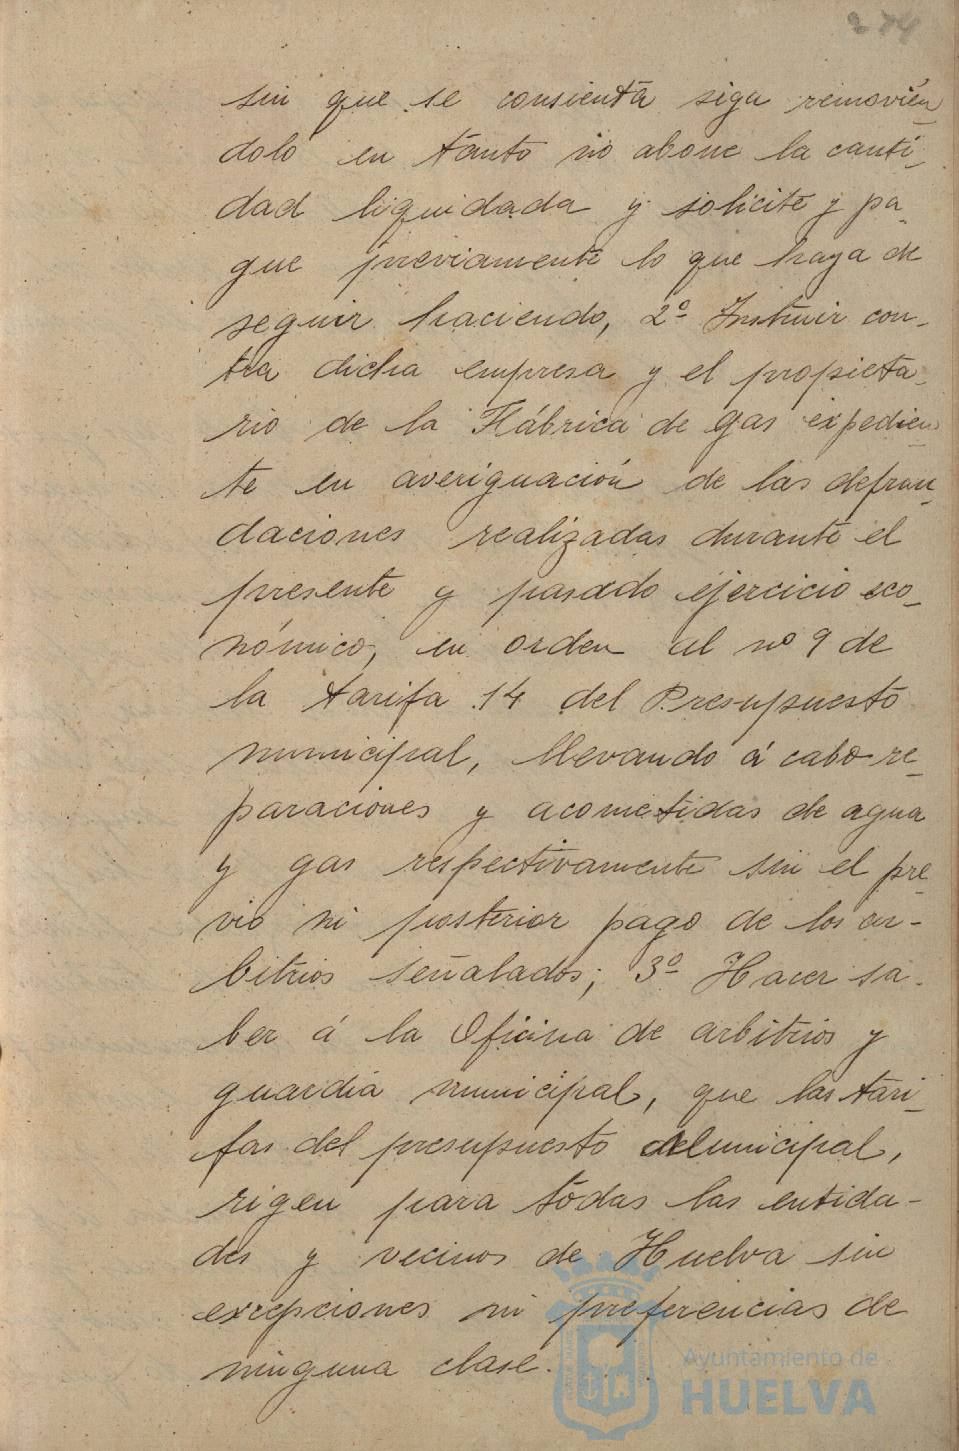 274
sin que se consienta siga removién
dolo en tanto no abone la canti-
dad liquidada y solicite y pa-
gue previamente lo que haya de
seguir haciendo, 2º Instruir con-
tra dicha empresa y el propieta-
rio de la Fábrica de gas expedien
te en averiguación de las defrau-
daciones realizadas durante el
presente y pasado ejercicio eco-
nómico, en orden al nº 9 de
la tarifa 14 del Presupuesto
municipal, llevando á cabo re-
paraciones y acometidas de agua
y gas respectivamente sin el pre-
vio ni posterior pago de los ar-
bitrios señalados; 3º Hacer sa-
ber á la Oficina de arbitrios y
guardia municipal, que las tari-
fas del presupuesto Municipal,
rigen para todas las entida-
des y vecinos de Huelva sin
excepciones ni preferencias de
ninguna clase.
Ayuntamiento de
HUELVA